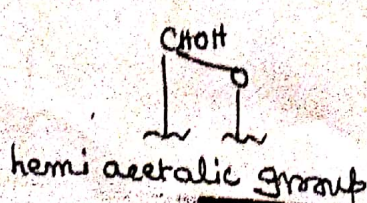 CHOH
O
hemi acetalic group